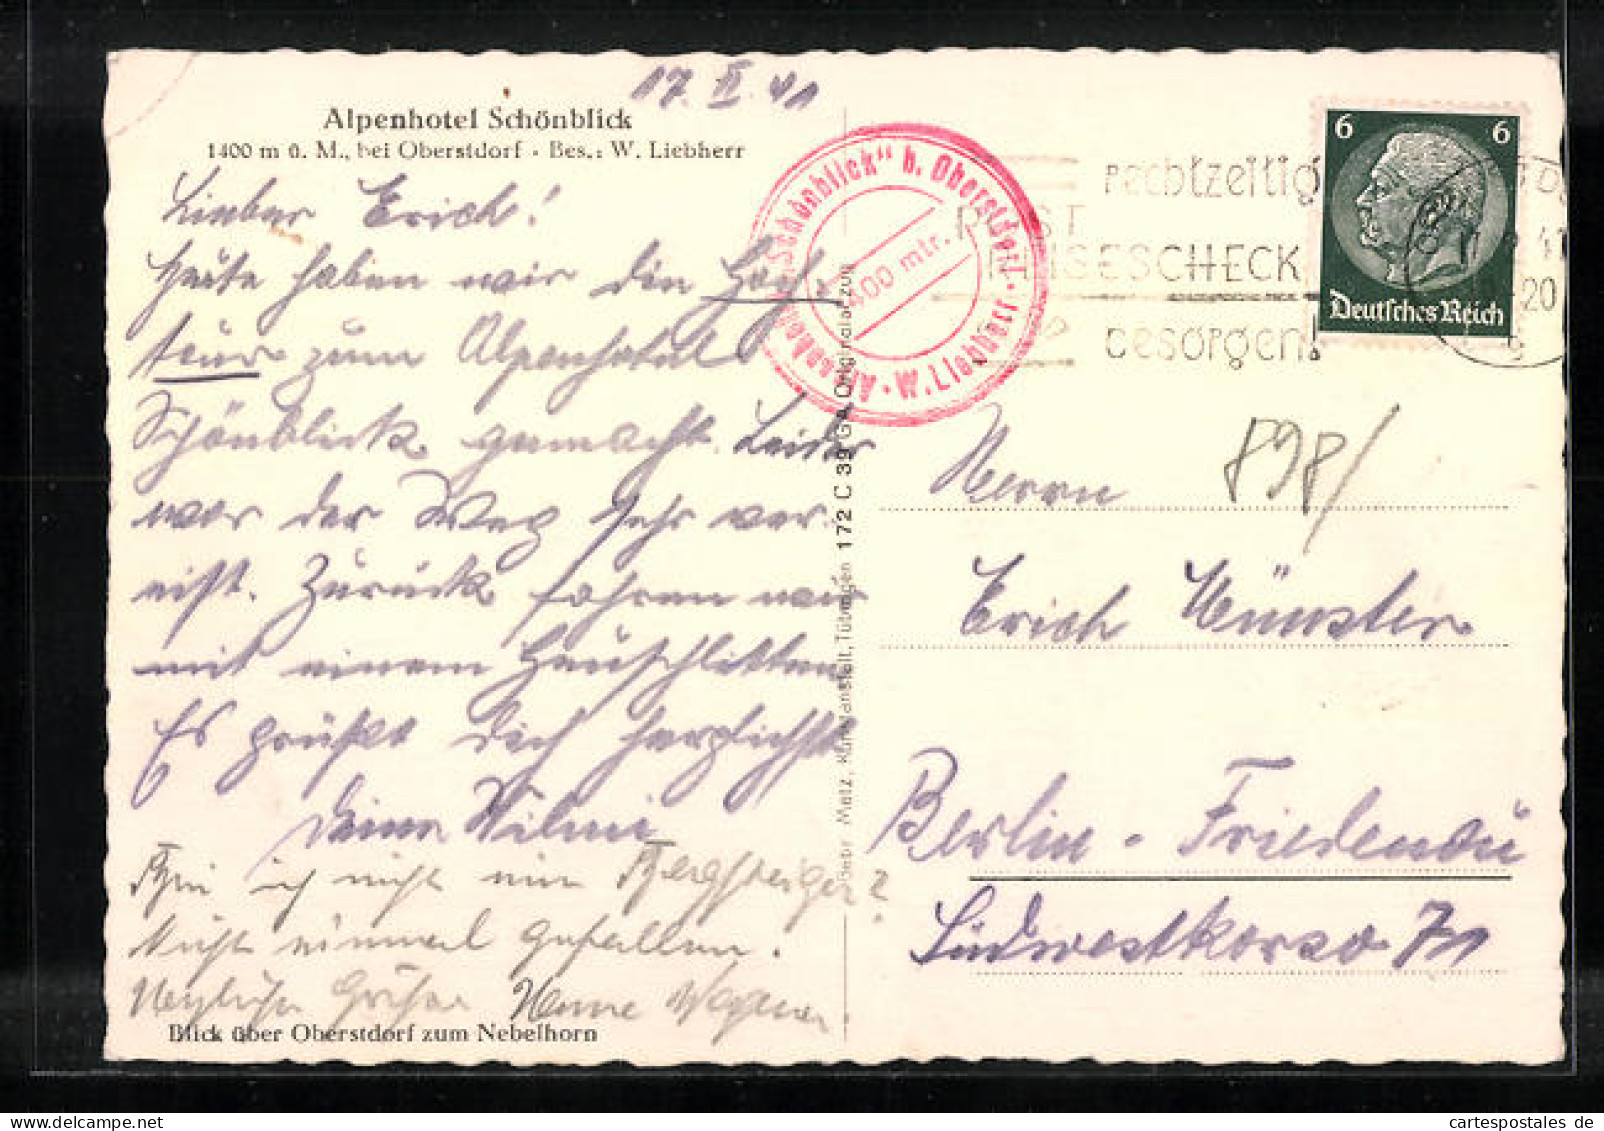 17. II. 41
Alpenhotel Schönblick
1400 m ü. M., bei Oberstdorf - Bes.: W. Liebherr
Lieber Erich!
Heute haben wir die Hoch-
tour zum Alpenhotel
Schönblick gemacht. Leider
war der Weg sehr ver-
eist. Zurück fahren wir
mit einem Heuschlitten
Es grüßt Dich herzlichst
Deine Wilmi
Bin ich nicht ein Bergsteiger?
Nicht einmal gefallen.
Herzliche Grüße Hanne Wagner
Blick über Oberstdorf zum Nebelhorn
Gebr. Metz, Kunstanstalt, Tübingen 172 C 39 GA Originalar zug
Alpenhotel „Schönblick" b. Oberstdorf · W. Liebherr
1400 mtr.
rechtzeitig
POST
REISESCHECK
besorgen!
6 6
Deutsches Reich
41
20
898/
Herrn
Erich Münster
Berlin - Friedenau
Südwestkorso 71
www.cartespostales.de
cartespostales.de